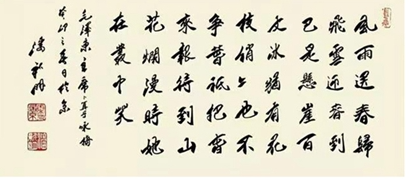 風雨送春歸
飛雪迎春到
已是懸崖百
丈冰猶有花
枝俏々也不
争春祇把春
來報待到山
花爛漫時她
在叢中笑
毛澤東主席卜算子咏梅
卯之春日於京